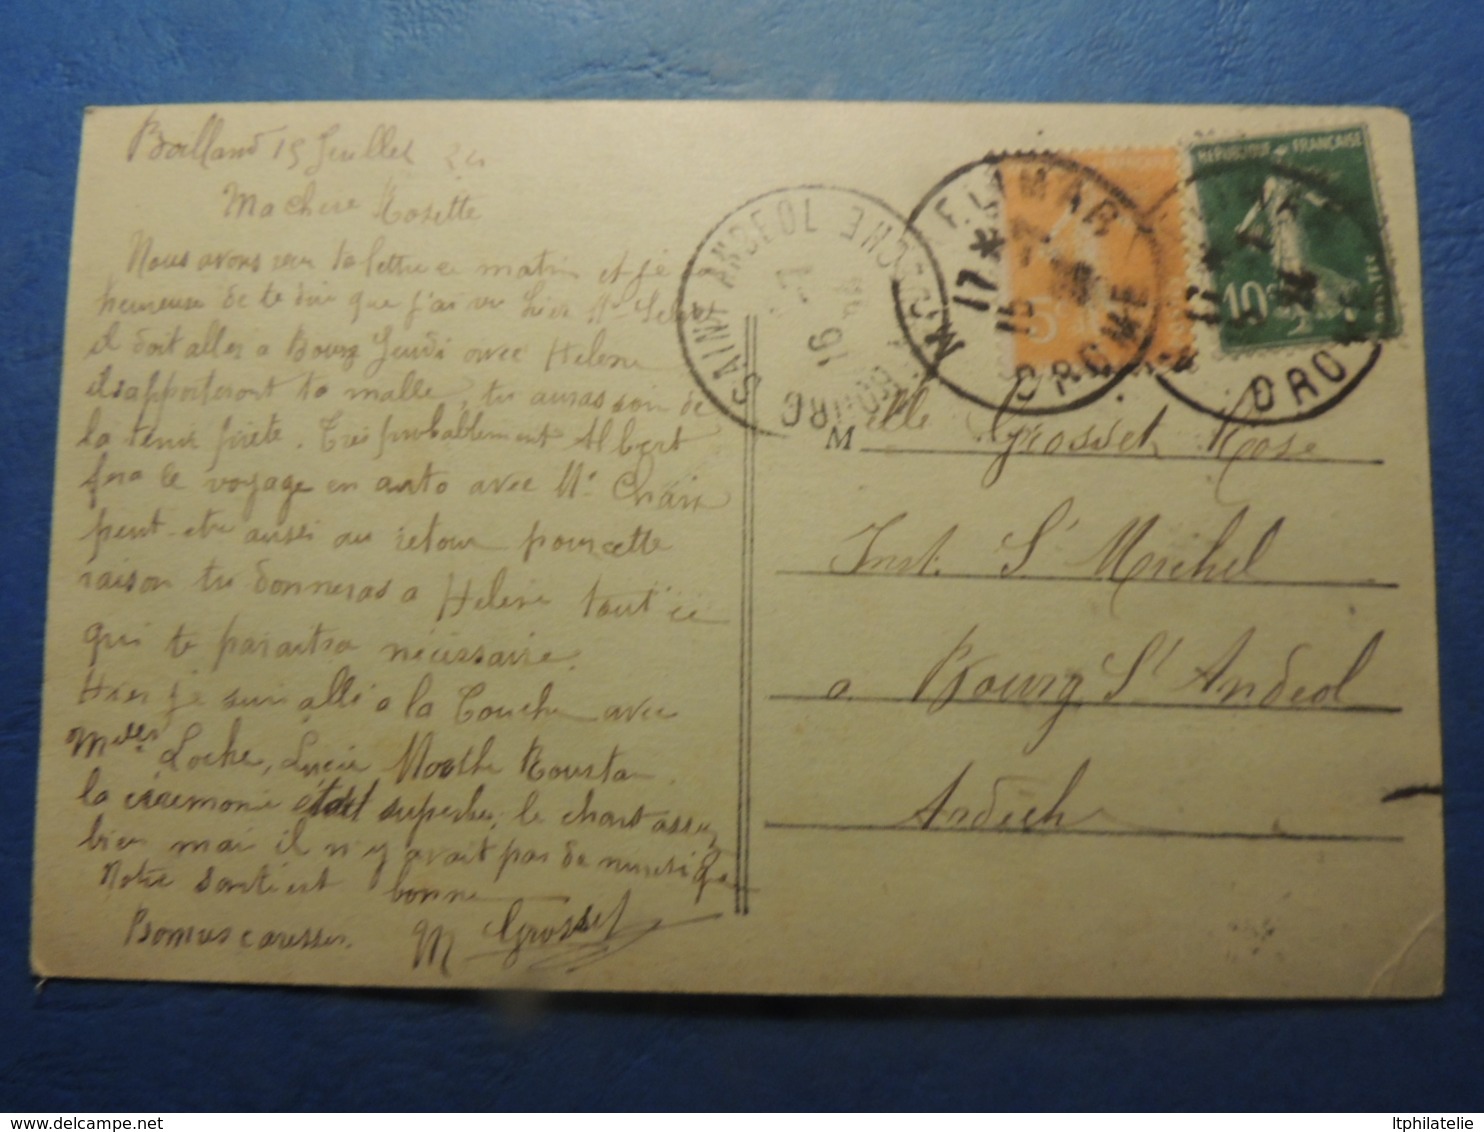 15 Juillet 24
Ma chere Rosette
Nous avons reçu ta lettre ce matin et je
heureuse de te dire que j'ai vu hier Mr
il doit aller a Bourg Jeudi avec Helene
ils apporteront ta malle, tu auras soin de
la tenir prete. Tres probablement Albert
fera le voyage en auto avec Mr
peut-etre aussi au retour pour cette
raison tu donneras a Helene tout ce
qui te paraitra nécessaire.
Hier je suis allé a la Touche avec
Melles Loche, Lucie Roustan
la ceremonie était superbe, le chant assez
bien mais il n'y avait pas de musique
Notre santé est bonne
Bonnes caresses. M Grosset
SAINT ANDEOL
BOURG
ARDECHE
16
MONTELIMAR
17 *
15 -7
DROME
5c
REPUBLIQUE FRANÇAISE
10c
17 *
24
DROME
Melle Grosset Rose
Inst. St Michel
a Bourg St Andeol
Ardèche
ltphilatelie